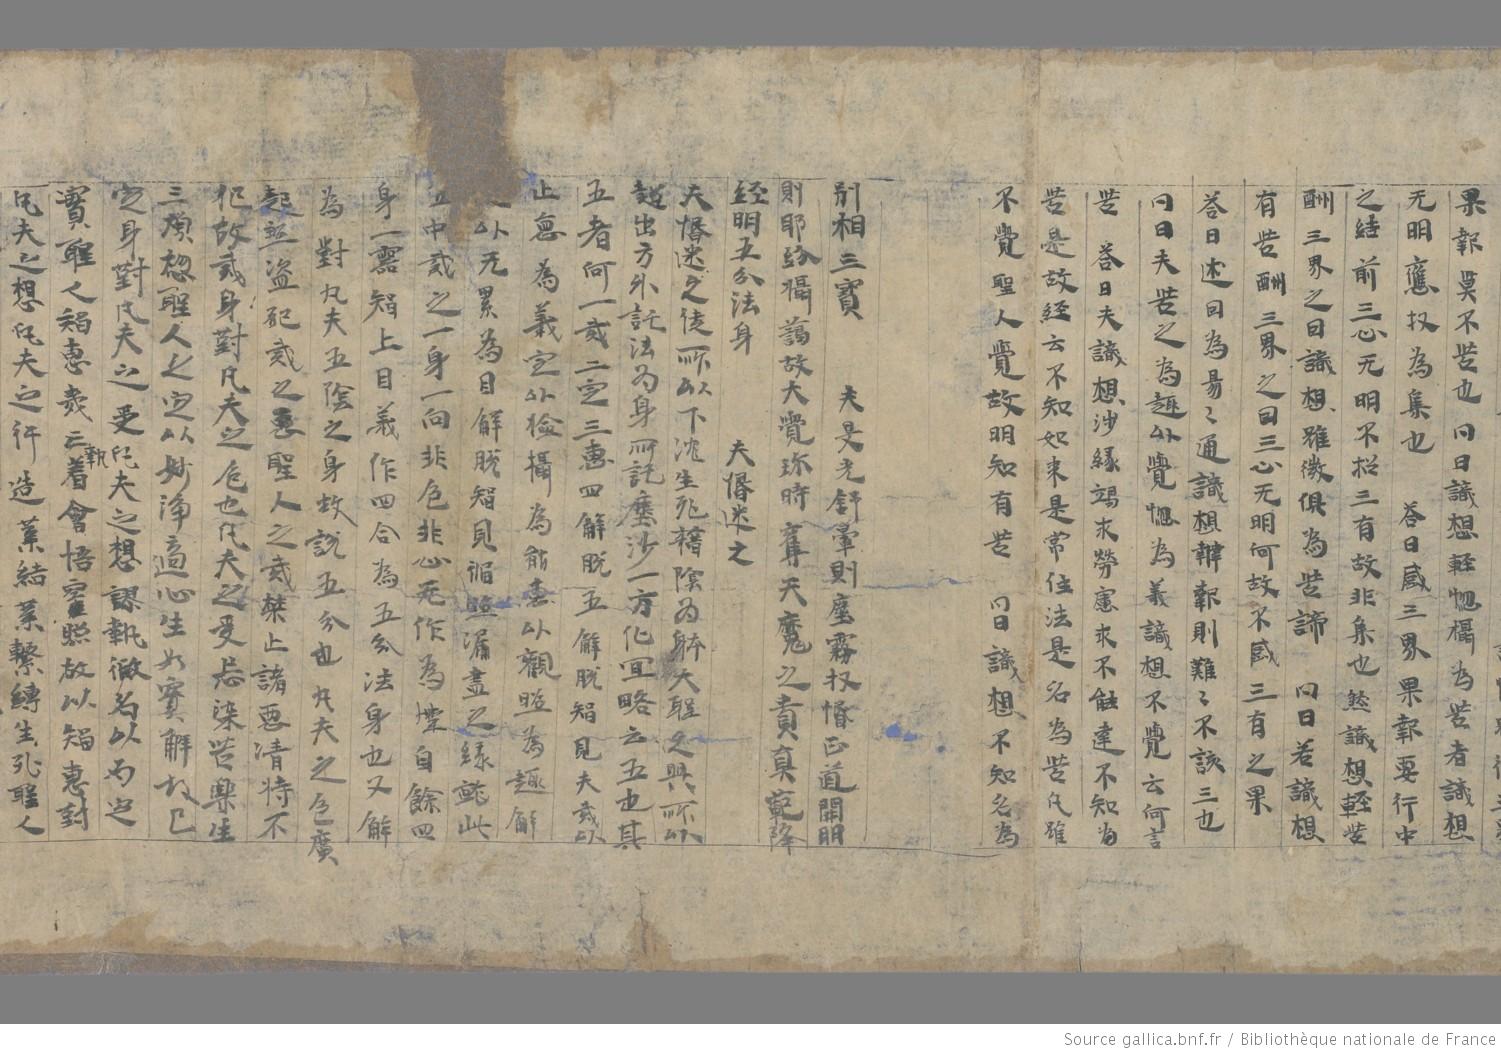 果報莫不苦也問曰識想輕惚攝為苦者識想
无明應扠為集也　答曰感三界果報要行中
之結前三心无明不招三有故非集也然識想輕苦
酬三界之曰識想雖微俱為苦諦　問曰若識想
有苦酬三界之曰三心无明何故不感三有之果
答曰述曰為易〻通識想難〻不該三也
問曰夫苦之為趣以覺惚為義識想不覺云何言
苦　答曰夫識想涉緣竭求勞慮求不能違不知為
苦是故經云不知如來是常住法是名為苦凡雖
不覺聖人覺故明知有苦　問曰識想不知名為
別相三寶　夫旻光舒暈則塵霧扠惛正道開明
則耶紛攝藹故大覺弥時奪天魔之責真範降
經明五分法身　夫惛迷之
夫惛迷之徒所以下沈生死藉陰為躰大聖之興所以
超出方外託法為身所託塵沙一方化宜略云五也其
五者何一戒二定三惠四解脫五解脫知見夫戒以
止 為義定以檢攝為能惠以觀照為趣解
以无累為目解脫智見謂照漏盡之緣
五中戒之一身一向非色非心死作為 自餘四
身一 智上目義作四合為五分法身也又解
為對凡夫五陰之身故說五分也凡夫之色廣
起 盜犯戒之惡聖人之戒 止諸惡清 不
犯故戒身對凡夫之色也凡夫之受 染苦樂生
三煩惱聖人之定以妙淨適心生如實解故已
定身對凡夫之受凡夫之想謬執徵名以為定
實聖人智惠 亡執著會悟空照故以智惠對
凡夫之想凡夫之行造業結業繫縛生死聖人
Source gallica.bnf.fr / Bibliothèque nationale de France